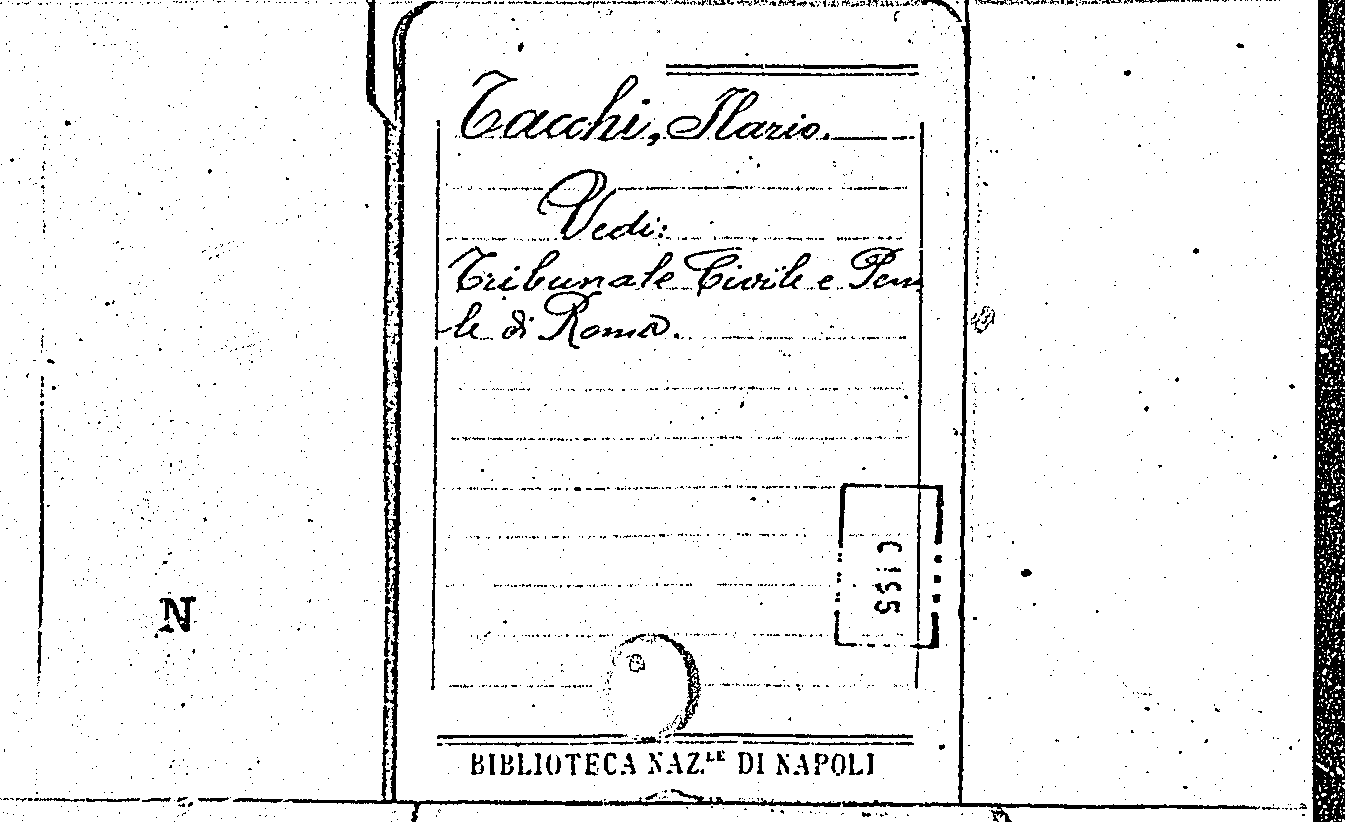 Tacchi, Ilario.
Vedi:
Tribunale Civile e Pena
le di Roma.
N
BIBLIOTECA NAZ.LE DI NAPOLI